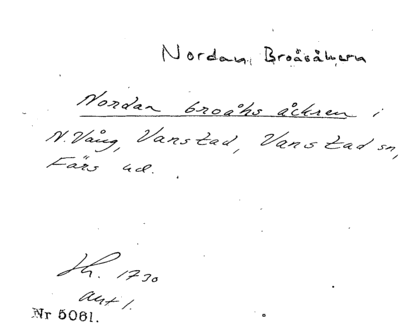 Nordan Broåsåkern
Nordan broåhs åckren i
N. Vång, Vanstad, Vanstad sn,
Färs hd.
Lh. 1730
akt 1.
Nr 5061.